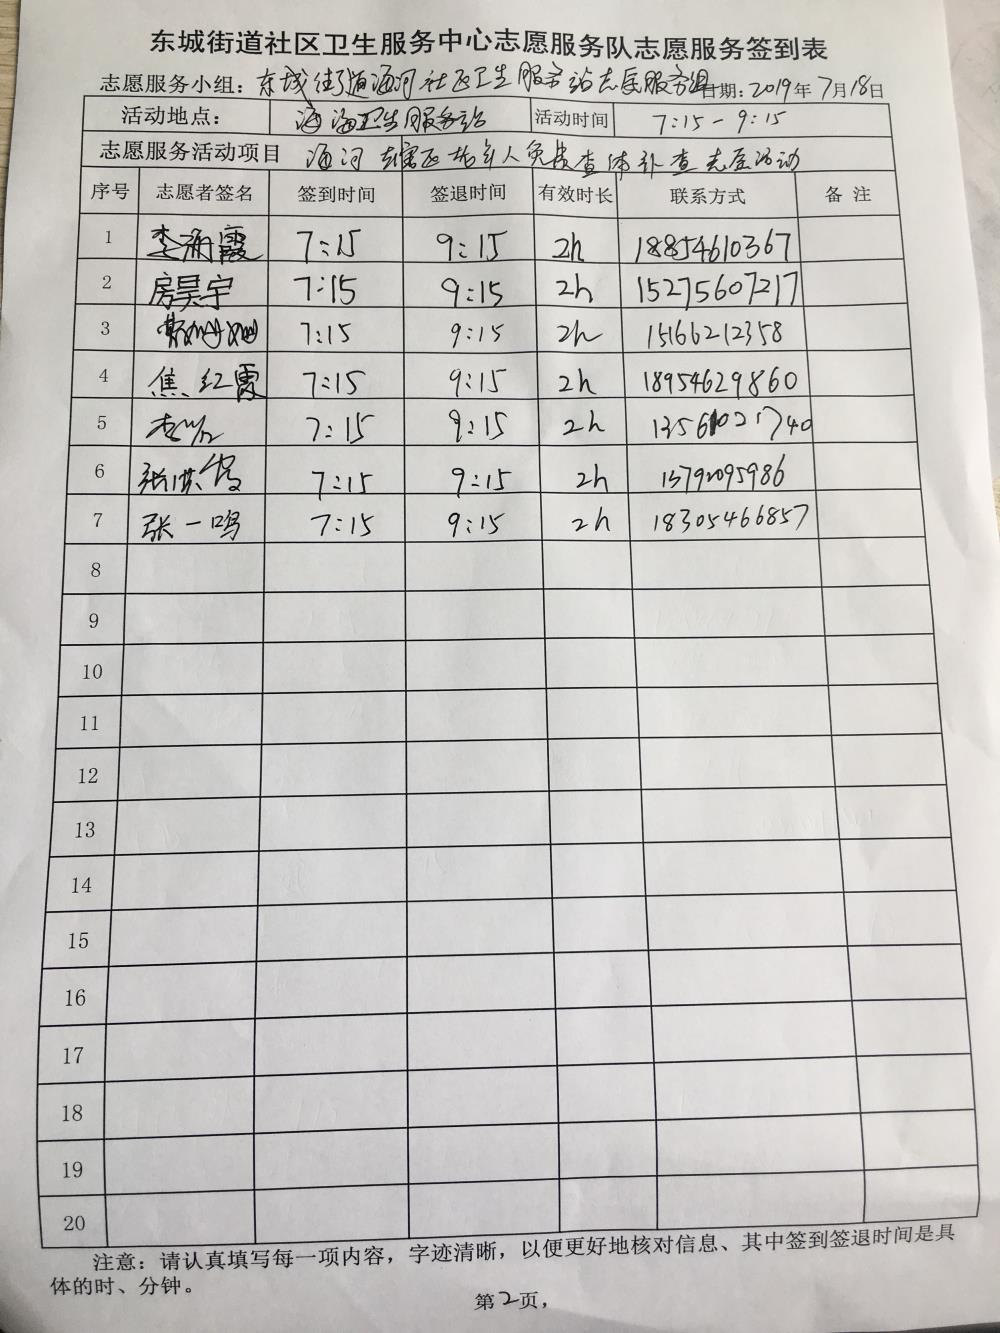 东城街道社区卫生服务中心志愿服务队志愿服务签到表
志愿服务小组：东城街道海河社区卫生服务站志愿服务组 日期：2019年7月18日
活动地点： 海河卫生服务站 活动时间 7:15-9:15
志愿服务活动项目 海河 辖区老年人免费查体补查志愿活动
序号 志愿者签名 签到时间 签退时间 有效时长 联系方式 备 注
1 李海霞 7:15 9:15 2h 18854610367
2 房昊宇 7:15 9:15 2h 15275607217
3 7:15 9:15 2h 15166212358
4 焦红霞 7:15 9:15 2h 18954629860
5 7:15 9:15 2h 13561021740
6 张洪俊 7:15 9:15 2h 13792095986
7 张一鸣 7:15 9:15 2h 18305466857
8
9
10
11
12
13
14
15
16
17
18
19
20
注意：请认真填写每一项内容，字迹清晰，以便更好地核对信息、其中签到签退时间是具
体的时、分钟。
第2页，